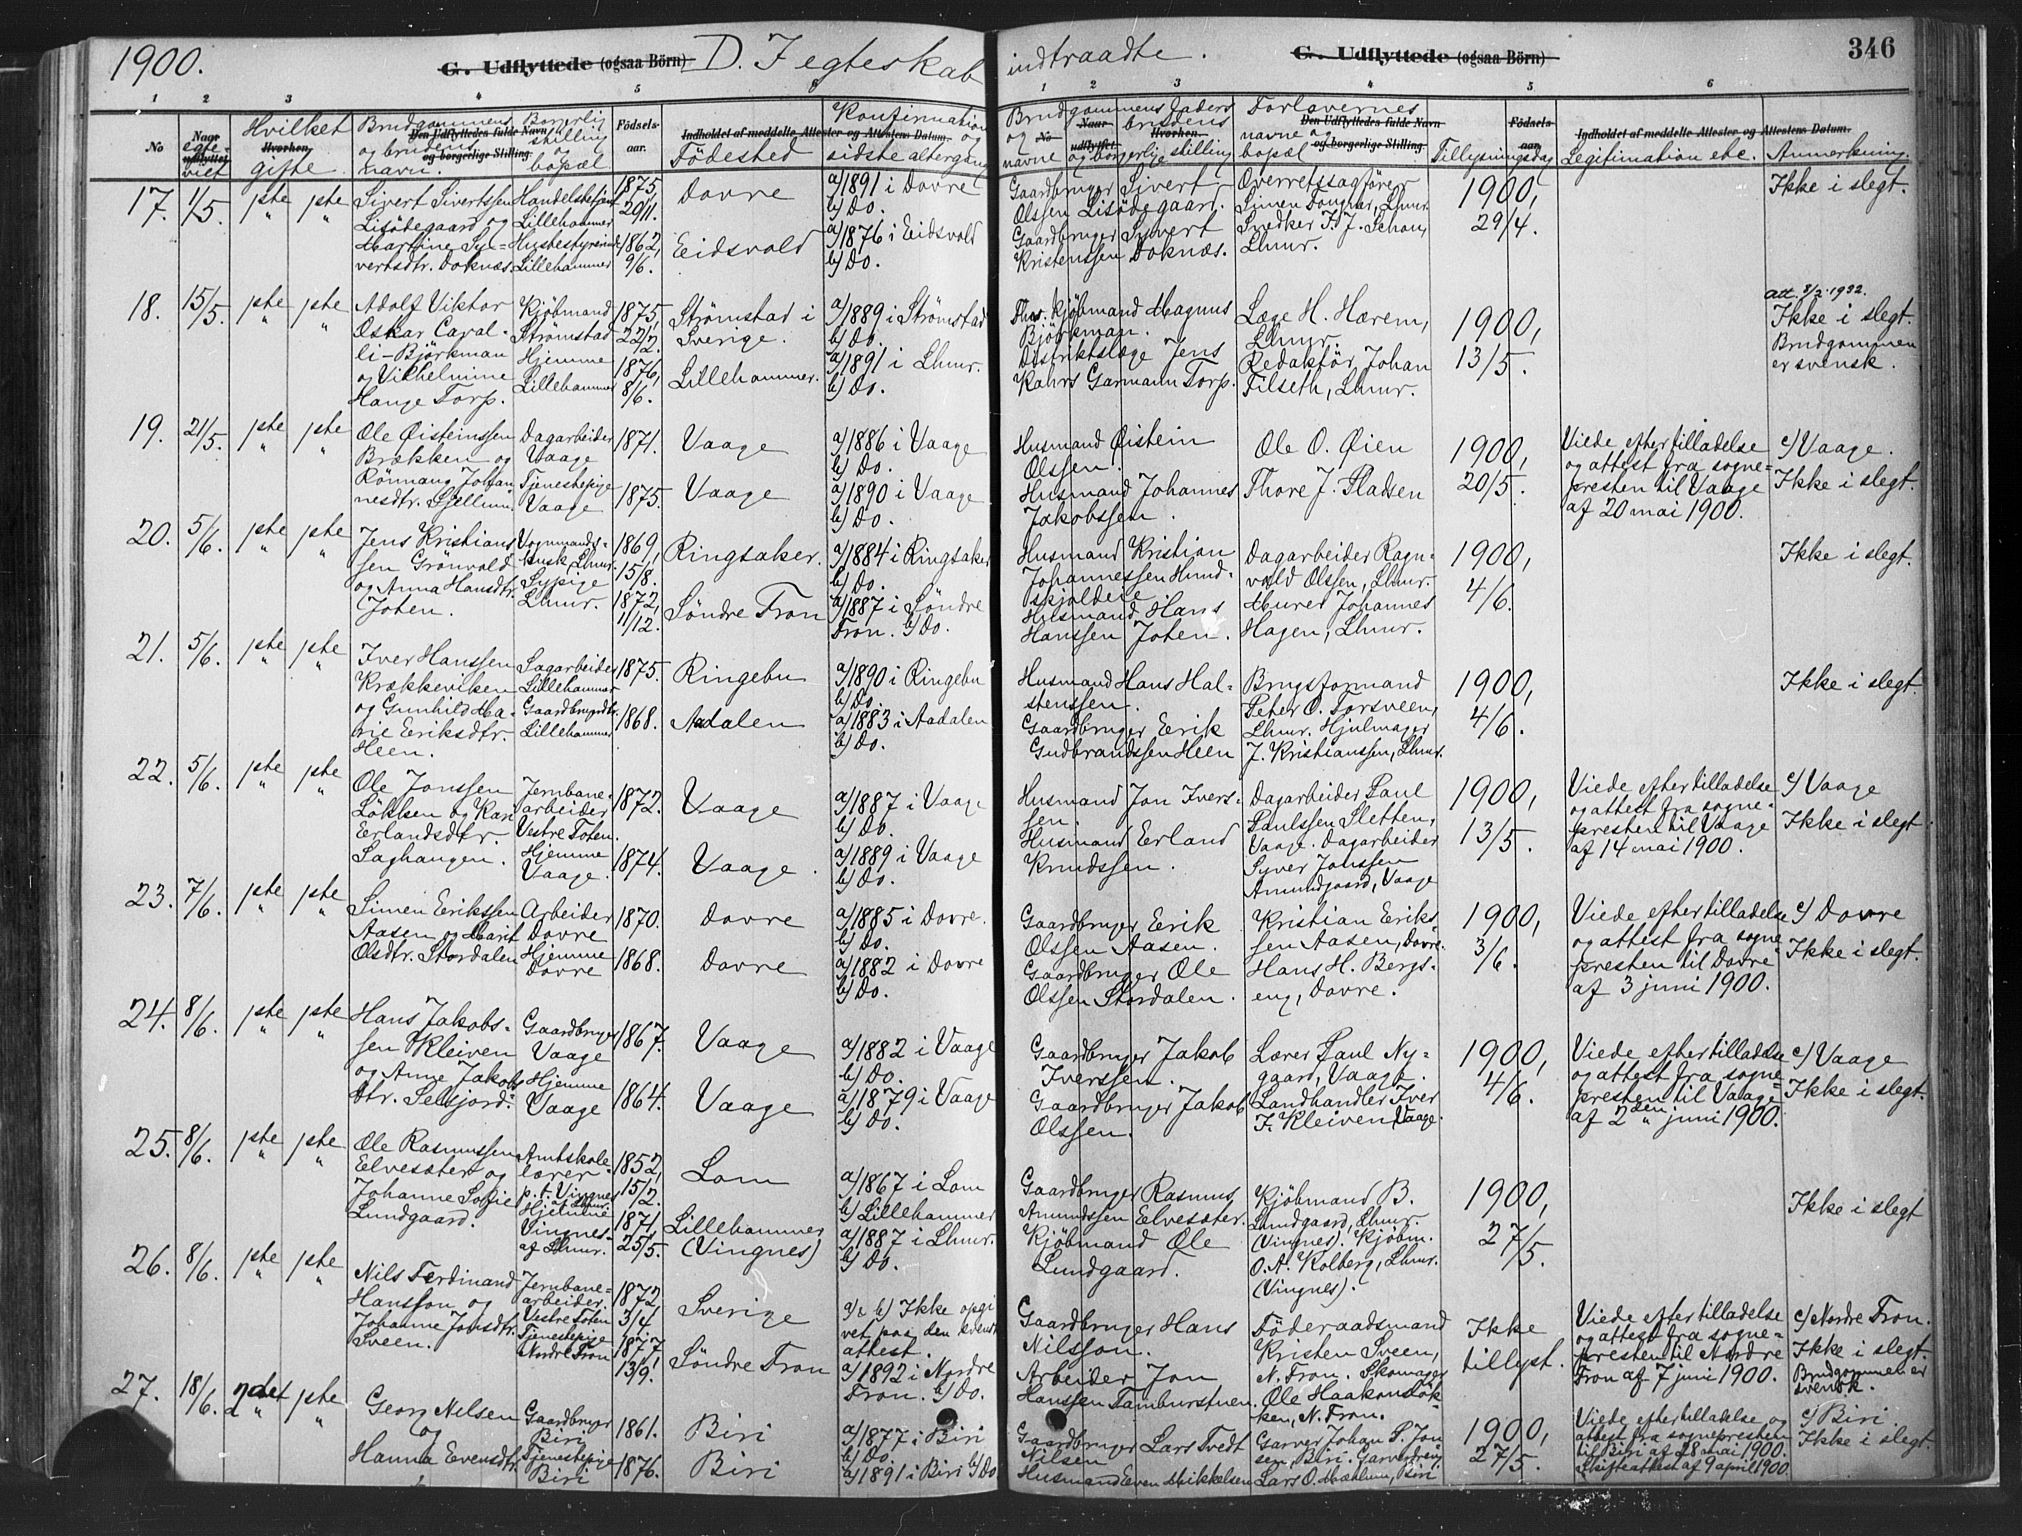 1900.
G. Udflyttede (ogsaa Börn) D. I egteskab
indtraadte. G. Udflyttede (ogsaa Börn)
346
1 2 3 4 5 6
1 2 3 4 5 6
No
Naar udflyttet
egteviet
Hvorhen.
Hvilket gifte.
Den Udflyttedes fulde Navn og borgerlige Stilling.
Brudgommens og brudens navn.
Borgerlig stilling og bopæl
Födselsaar.
Indholdet af meddelte Attester og Attestens Datum.
Födested
Konfirmation og sidste altergang
Brudgommens faders og brudens
navne og borgerlige stilling
Forlovernes navne og bopæl
Tillysningsdag
Indholdet af meddelte Attester og Attestens Datum.
Legitimation etc.
Anmerkning.
17. 1/5. 1ste " 1ste "
Sivert Sivertssen
Lisödegaard og
Martine Syl-
vertsdtr. Doknæs.
Handelsbetjent
Lillehammer
Husbestyrerinde
Lillehammer
1875, 20/11.
1862, 9/6.
Dovre
Eidsvold
a/1891 i Dovre
b/Do.
a/1876 i Eidsvold
b/Do.
Gaardbruger Sivert
Olssen Lisödegaard.
Gaardbruger Syvert
Kristenssen Doknæs.
Overretssagförer
Simen Lhmr.
Snedker Lhmr.
1900,
29/4.
Ikke i slegt.
18. 15/5. 1ste " 1ste "
Adolf Viktor
Oskar Caval-
li-Björkman
og Vilhelmine
Hange Torp.
Kjöbmand
Strømstad
Hjemme
Lillehammer
1875, 22/2.
1876, 8/6.
Strømstad i
Sverige.
Lillehammer.
a/1889 i Strømstad
b/Do.
a/1891 i Lhmr.
b/Do.
Kjöbmand Magnus
Björkman.
Distriktslæge Jens
Kahrs Garmann Torp.
Læge H. Hærem,
Lhmr.
Redaktör Johan
Filseth, Lhmr.
1900,
13/5.
Att. 8/2. 1932.
Ikke i slegt.
Brudgommen
er svensk.
19. 21/5. 1ste " 1ste "
Ole Øisteinssen
Brækken og
Rönnaug Johan
nesdtr.
Dagarbeider
Vaage
Tjenestepige
Vaage
1871.
1875.
Vaage
Vaage
a/1886 i Vaage
b/Do.
a/1890 i Vaage
b/Do.
Husmand Øistein
Olssen.
Husmand Johannes
Jakobssen.
Ole O. Øien
Thore J. Pladsen
1900,
20/5.
Viede efter tilladelse
og attest fra sogne-
presten til Vaage
af 20 mai 1900.
c/ Vaage.
Ikke i slegt.
20. 5/6. 1ste " 1ste "
Jens Kristians
sen Grönvold
og Anna Hansdtr.
Joten.
Vognmands-
kusk, Lhmr.
Sypige
Lhmr.
1869, 15/8.
1872, 11/12.
Ringsaker.
Söndre Fron
a/1884 i Ringsaker
b/Do.
a/1887 i Söndre
Fron. b/Do.
Husmand Kristian
Johannessen Hund-
skjoldeie
Husmand Hans
Hanssen Joten.
Dagarbeider Ragn-
vald Olssen, Lhmr.
Murer Johannes
Hagen, Lhmr.
1900,
4/6.
Ikke i slegt.
21. 5/6. 1ste " 1ste "
Iver Hanssen
Krækkeviken
og Gunhild Ma-
rie Eriksdtr.
Heen.
Sagarbeider
Lillehammer
Gaardbrugerdtr.
Lillehammer
1875.
1868.
Ringebu
Aadalen
a/1890 i Ringebu
b/Do.
a/1883 i Aadalen
b/Do.
Husmand Hans Hal-
stenssen.
Gaardbruger Erik
Gudbrandssen Heen
Brugsformand
Peter O. Forsveen,
Lhmr. Hjulmager
J. Kristianssen, Lhmr.
1900,
4/6.
Ikke i slegt.
22. 5/6. 1ste " 1ste "
Ole Jonssen
Lökken og Kari
Erlandsdtr.
Saghaugen.
Jernbane-
arbeider
Vestre Toten.
Hjemme
Vaage.
1872.
1874.
Vaage
Vaage.
a/1887 i Vaage
b/Do.
a/1889 i Vaage
b/Do.
Husmand Jon Ivers-
sen.
Husmand Erland
Knudssen.
Dagarbeider Paul
Paulssen Sletten,
Vaage. Dagarbeider
Syver Johssen
Amundgaard, Vaage
1900,
13/5.
Viede efter tilladelse
og attest fra sogne-
presten til Vaage
af 14 mai 1900.
c/ Vaage
Ikke i slegt.
23. 7/6. 1ste " 1ste "
Simen Erikssen
Aasen og Marit
Olsdtr. Stordalen
Arbeider
Dovre
Hjemme
Dovre
1870.
1868.
Dovre
Dovre
a/1885 i Dovre.
b/Do.
a/1882 i Dovre
b/Do.
Gaardbruger Erik
Olssen Aasen.
Gaardbruger Ole
Olssen Stordalen.
Kristian Eriks-
sen Aasen, Dovre.
Hans H. Bergs-
eng, Dovre.
1900,
3/6.
Viede efter tilladelse
og attest fra sogne
presten til Dovre
af 3 juni 1900.
c/ Dovre
Ikke i slegt.
24. 8/6. 1ste " 1ste "
Hans Jakobs-
sen Kleiven
og Anne Jakobs
dtr. Selsjord.
Gaardbruger
Vaage
Hjemme
Vaage
1867.
1864.
Vaage
Vaage
a/1882 i Vaage
b/Do.
a/1879 i Vaage
b/Do.
Gaardbruger Jakob
Iverssen.
Gaardbruger Jakob
Olssen.
Lærer Paul Ny-
gaard, Vaage.
Landhandler Iver
I. Kleiven, Vaage
1900,
4/6.
Viede efter tilladelse
og attest fra sogne-
presten til Vaage
af 2den juni 1900.
c/ Vaage
Ikke i slegt.
25. 8/6. 1ste " 1ste "
Ole Rasmussen
Elvesæter og
Johanne Sofie
Lundgaard.
Amtskole-
lærer
p.t. Vingnes
Hjemme
Vingnes
af Lhmr.
1852, 15/2.
1871, 25/5.
Lom
Lillehammer
(Vingnes)
a/1867 i Lom
b/Lillehammer
a/1887 i Lhmr.
b/Do.
Gaardbruger Rasmus
Amundssen Elvesæter.
Kjöbmand Ole
Lundgaard.
Kjöbmand B.
Lundgaard, Lhmr.
(Vingnes). Kjöbm.
O. A. Kolberg, Lhmr.
(Vingnes).
1900,
27/5.
Ikke i slegt
26. 8/6. 1ste " 1ste "
Nils Ferdinand
Hansson og
Johanne Jonsdtr.
Sveen.
Jernbane-
arbeider.
Vestre Toten
Tjenestepige
Nordre Fron
1872, 3/4.
1877, 13/9.
Sverige
Söndre Fron
a/ & b/ Ikke opgi
vet paa den svenske
attest.
a/1892 i Nordre
Fron. b/Do.
Gaardbruger Hans
Nilsson.
Arbeider Jon
Hanssen Tamburstuen.
Föderaadsmand
Kristen Sveen,
N. Fron. Skomager
Ole Haakonssen Lök-
ken, N. Fron.
Ikke
tillyst.
Viede efter tilladelse
og attest fra sogne-
presten til Nordre
Fron af 7 juni 1900.
c/ Nordre Fron.
Ikke i slegt.
Brudgommen er
svensk.
27. 18/6. 2det " 1ste "
Georg Nelsen
og
Hanna Evensdtr.
Gaardbruger
Biri
Tjenestepige
Biri
1861.
1876.
Biri
Biri
a/1877 i Biri
b/Do.
a/1891 i Biri b/Do
Gaardbruger Lars Tvedt
Nilsen
Husmand Even Mikkelsen
Garver Johan P. Jon
sen, Biri.
Lars O. Mæhlum, Biri
1900,
27/5.
Viede efter tilladelse og
attest fra sognepresten
til Biri af 28 mai 1900.
Skifteattest af 9 april 1900.
c/ Biri.
Ikke i slegt.